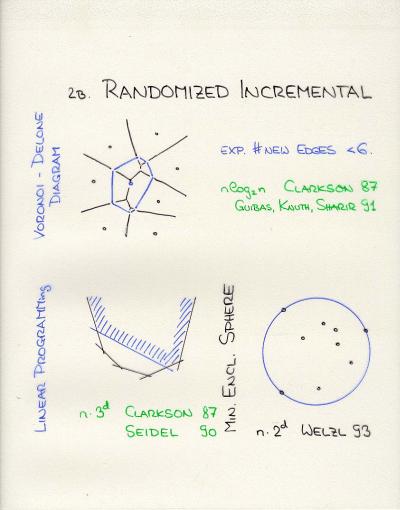 2B. RANDOMIZED INCREMENTAL
VORONOI - DELONE
DIAGRAM
EXP. # NEW EDGES < 6.
n log₂ n CLARKSON 87
GUIBAS, KNUTH, SHARIR 91
LINEAR PROGRAMMing
n·3ᵈ CLARKSON 87
SEIDEL 90
MIN. ENCL. SPHERE
n·2ᵈ WELZL 93